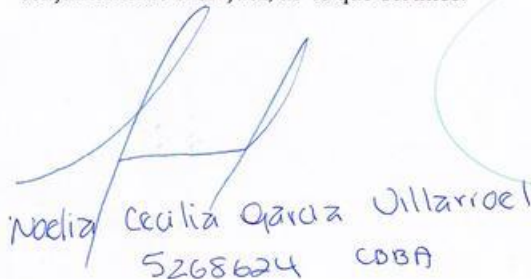 Noelia Cecilia Garcia Villarroel
5268624 CBBA